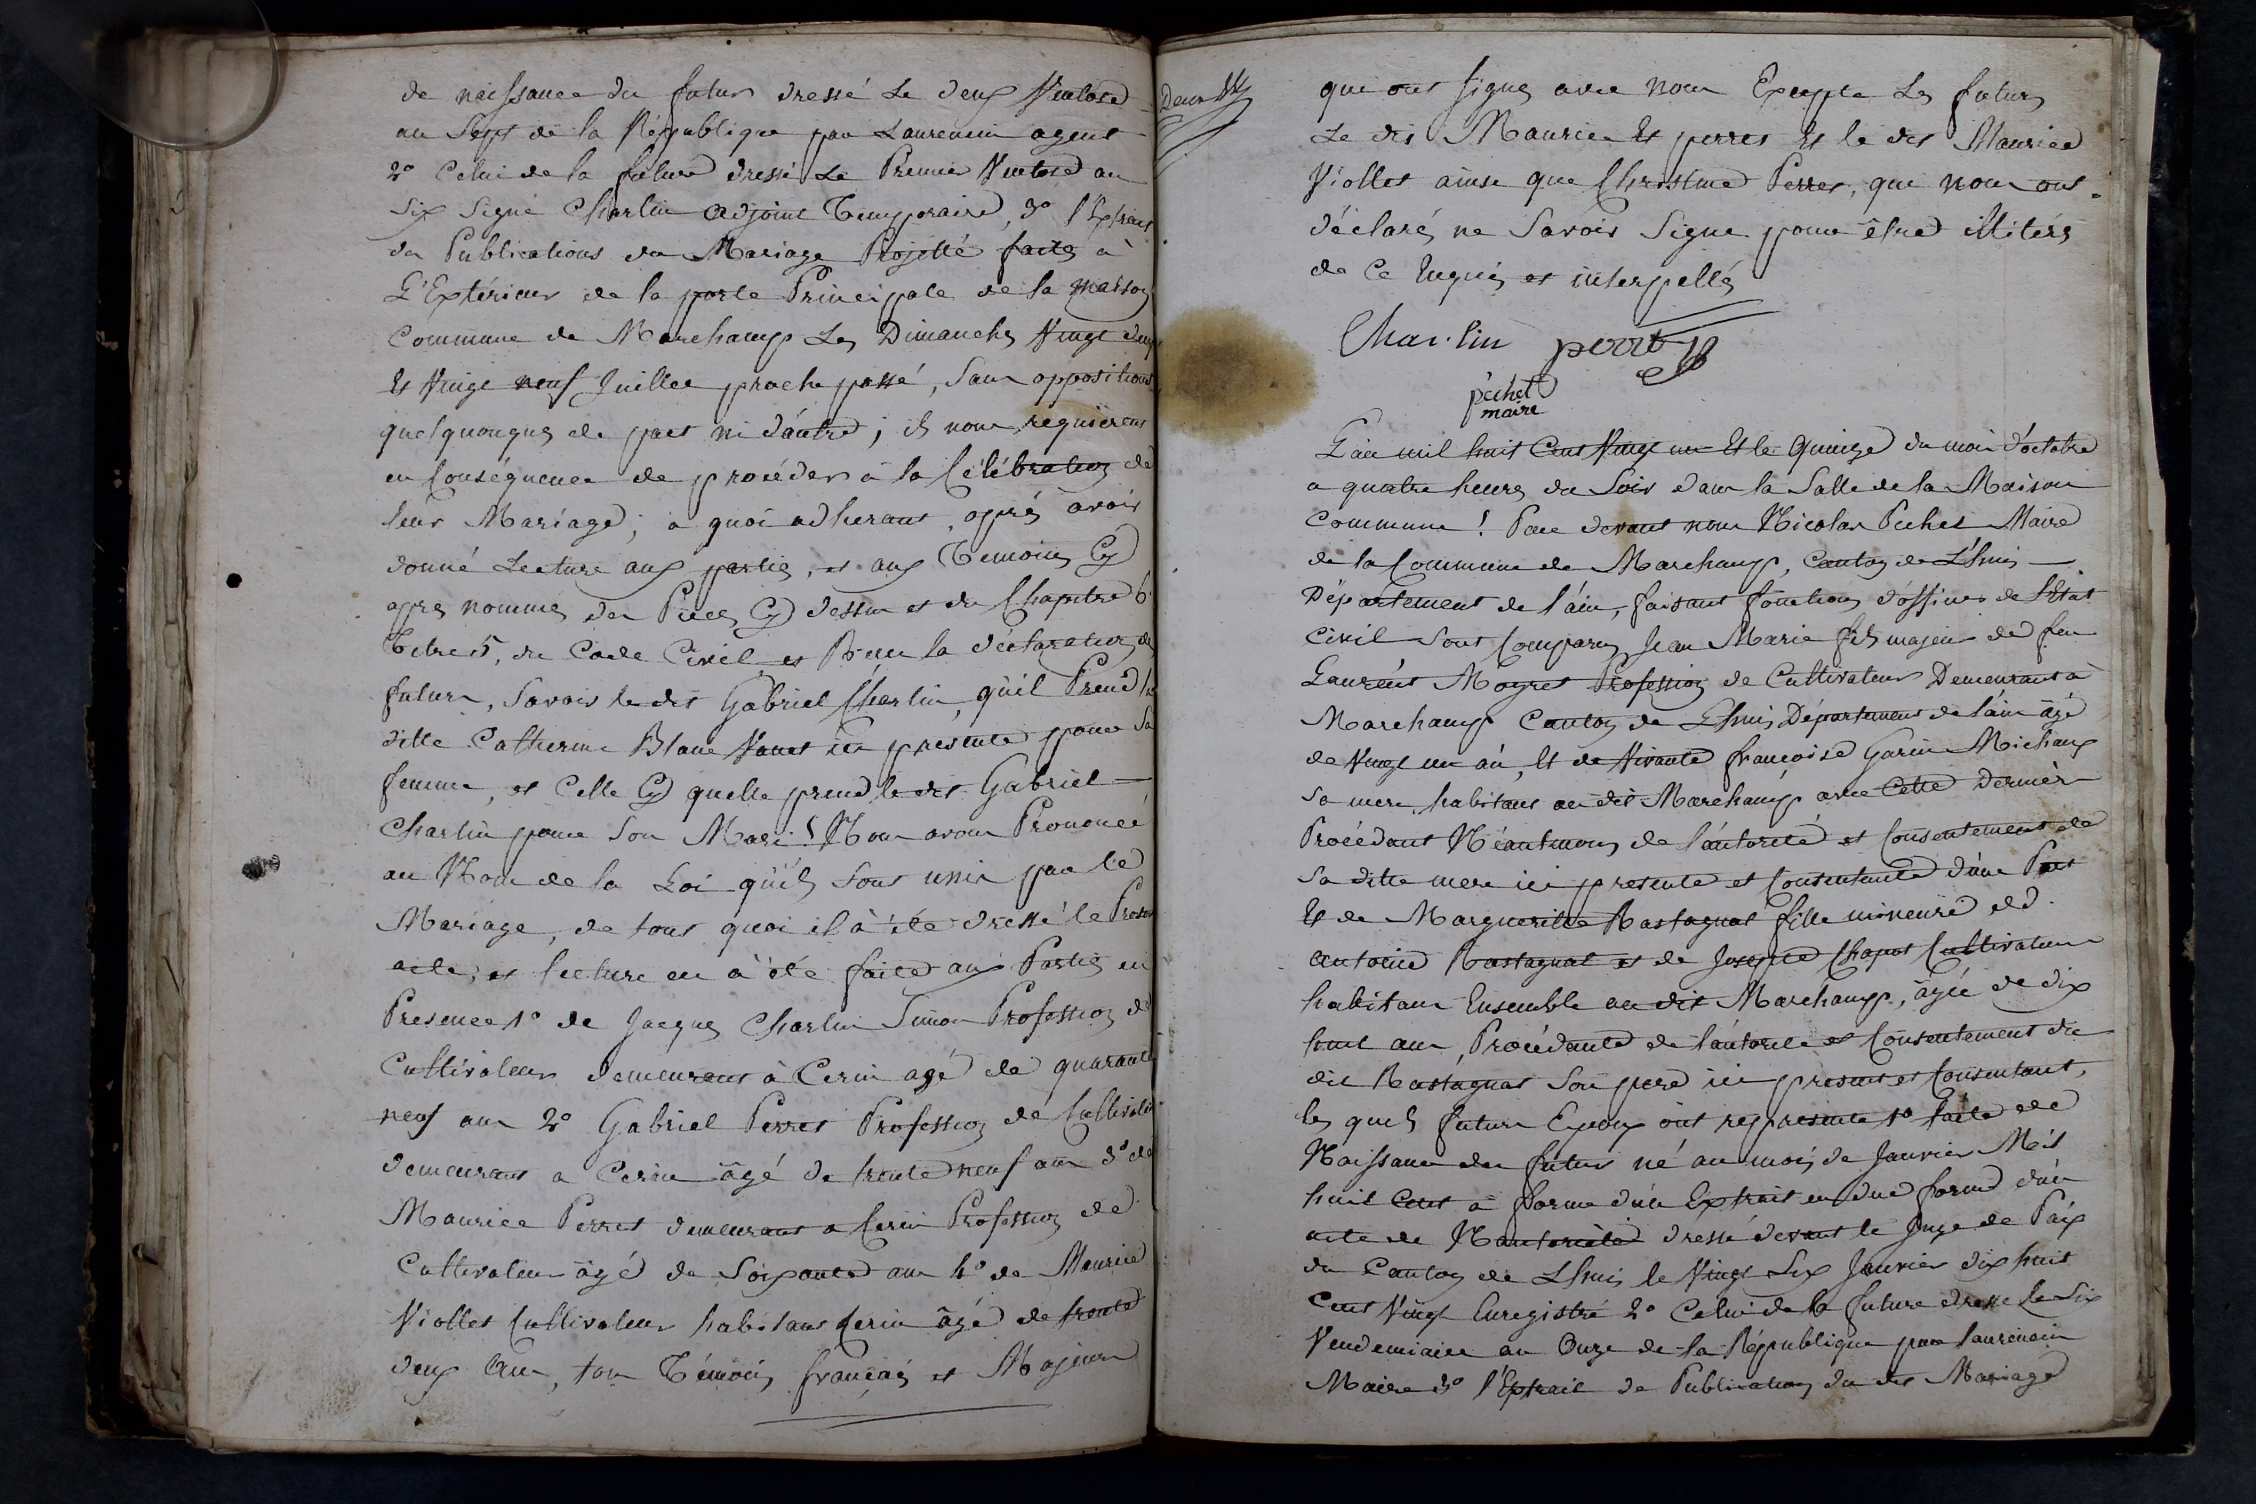 de naissance du futur dressé Le deux Ventose
an Sept de la République par Laurencin agent
2º Celui de la future dressé Le Premier Ventose an
Six Signé Charlin adjoint Temporaire, 3º l'Extrait
des Publications du Mariage Projetté faites à
L'Extérieur de la porte Principale de la maison
Commune de Marchamp Les Dimanches Vingt deux
Et Vingt neuf Juillet proche passé, Sans oppositions
quelquonques de part ni d'autre; ils nous requièrent
en Conséquence de procéder à la Célébration de
leur Mariage; a quoi adherant, après avoir
donné Lecture aux parties, et aux Temoins Cy
apres nommés des Pieces Cy dessus et du Chapitre 6
Titre 5, du Code Civil et Reçu la déclaration des
futurs, Savoir le dit Gabriel Charlin, qu'il Prend la
ditte Catherine Blanc Vanet ici presente pour Sa
femme, et Celle Cy quelle prend le dit Gabriel
Charlin pour Son Mari! Nous avons Prononcé
au Nom de la Loi qu'ils Sont unis par le
Mariage, de tout quoi il à été dressé le Present
acte, et lecture en à été faite aux Parties en
Presence 1º de Jacques Charlin Simon Profession de
Cultivateur demeurant à Cerin agé de quarante
neuf ans 2º Gabriel Perret Profession de Cultivateur
demeurant a Cerin âgé de trente neuf ans 3º de
Maurice Perret demeurant a Cerin Profession de
Cultivateur âgé de Soixante ans 4º de Maurice
Viollet Cultivateur habitant Cerin âgé de trente
deux ans, tous Témoins français et Majeurs
qui ont signés avec nous Excepte Les futurs
Le dit Maurice Et perret Et le dit Maurice
Viollet ainsi que Christine Perret, qui nous ont
déclarés ne Savoir Signe pour être illitérés
de Ce Enquis et interpellés
Charlin perret
pechet
maire
L'an mil huit Cent Vingt un Et le Quinze du mois d'octobre
a quatre heures du Soir dans la Salle de la Maison
Commune! Par devant nous Nicolas Pechet Maire
de la Commune de Marchamp, Canton de L'huis
Département de l'ain, faisant fonctions d'officier de l'Etat
Civil Sont Comparus Jean Marie fils majeur de feu
Laurent Moyret Profession de Cultivateur Demeurant à
Marchamp Canton de Lhuis Département de l'ain âgé
de Vingt un an, Et de Vivante françoise Garin Michaux
Sa mere, habitant au dit Marchamp avec Cette Dernière
Procédant Néantmoins de l'autorité et Consentement de
Sa ditte mere ici presente et Consentante d'une Part
Et de Marguerite Rastagnat fille mineure de
Antoine Rastagnat et de Josepte Chapot Cultivateurs
habitans Ensemble au dit Marchamp, âgée de dix
huit ans, Procédante de l'autorité et Consentement du
dit Rastagnat Son pere ici present et Consentant,
les quels futurs Epoux ont representé 1º l'acte de
Naissance du futur né au mois de Janvier Mil
huit Cent à forme d'un Extrait en due forme d'un
acte de Nautoriété dressé devant le Juge de Paix
du Canton de Lhuis le Vingt Six Janvier dix huit
Cent Vingt Enregistré 2º Celui de la future dressé le Six
Vendemiaire an Onze de la République par laurencin
Maire 3º l'Extrait de Publication du dit Mariage